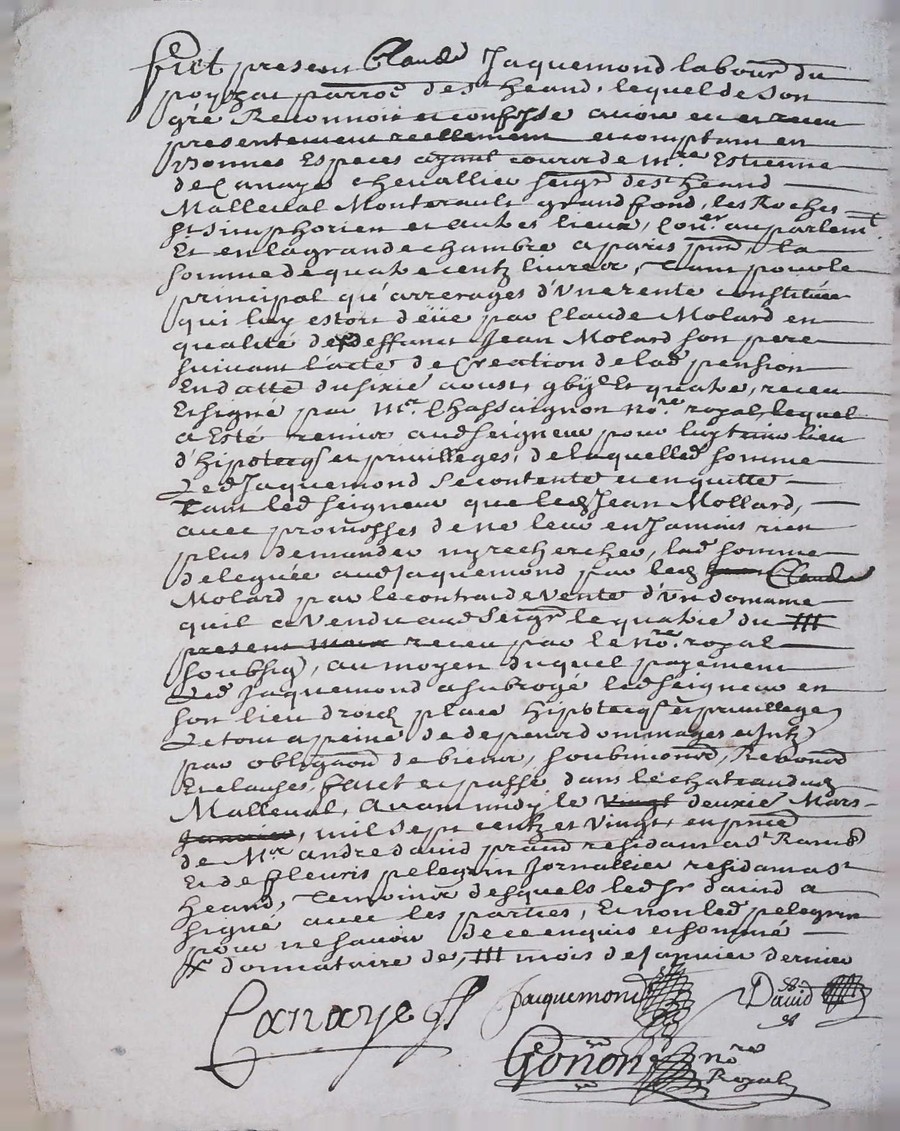 Fut present Claude Jaquemond labour du
poyzat parroc de st heand, lequel de son
gré Reconnoit et confesse avoir eu et receu
presentement reellement et comptant en
Bonnes Especes ayant cours de mre Estienne
de Canaye chevallier seigr de st heand
Malleval Monterault grand fond, les Roches
st simphorien et autres lieux, Coner au parlemt
Et en la grande chambre a paris pnt, la
somme de quatre centz livres, Tant pour le
principal qu'arrerages d'une rente constituée
qui luy estoit deüe par Claude Molard en
qualité de deffunct Jean Molard son pere
suivant l'acte de Creation de lad pension
En datte du sixie aoust, gbijc et quatre, receu
Et signé par Mr Chassaignon Nore royal, lequel
a Esté remis aud seigneur pour luy tenir lieu
d'hipotecq et privilleges, de laquelled somme
Led Jaquemond se contente et en quitte
Tant led seigneur que led Jean Mollard,
avec promesses de ne leur en Jamais rien
plus demander ny rechercher, lad somme
deleguée aud Jaquemond par led Jean Claude
Molard par le contrat de vente d'un domaine
quil a vendu aud Seigr le quatre du ///
present mois receu par le Nore royal
soubsig, au moyen duquel payement
Led Jaquemond a subrogé led seigneur en
son lieu droict place hipotecq et privilleges
Le tout a peine de depens dommages et Intz
par obligaon de biens, soubmions, Renons
Et clauses, faict et passé dans le chateau de
Malleval, avant midy le vingt deuxie Mars
Janvier, mil sept centz et vingt, en pnce
de Mr andré david prand residant a st Ramb
Et de fleuris pelegrin Jornallier residant a st
heand, Temoins desquels led sr david a
signé avec les parties, Et non led pelegrin
pour ne savoir de ce enquis et sommé
donnataire de, /// mois de Janvier dernier
Canaye
Jaquemond
David
Goñon nore
Royal